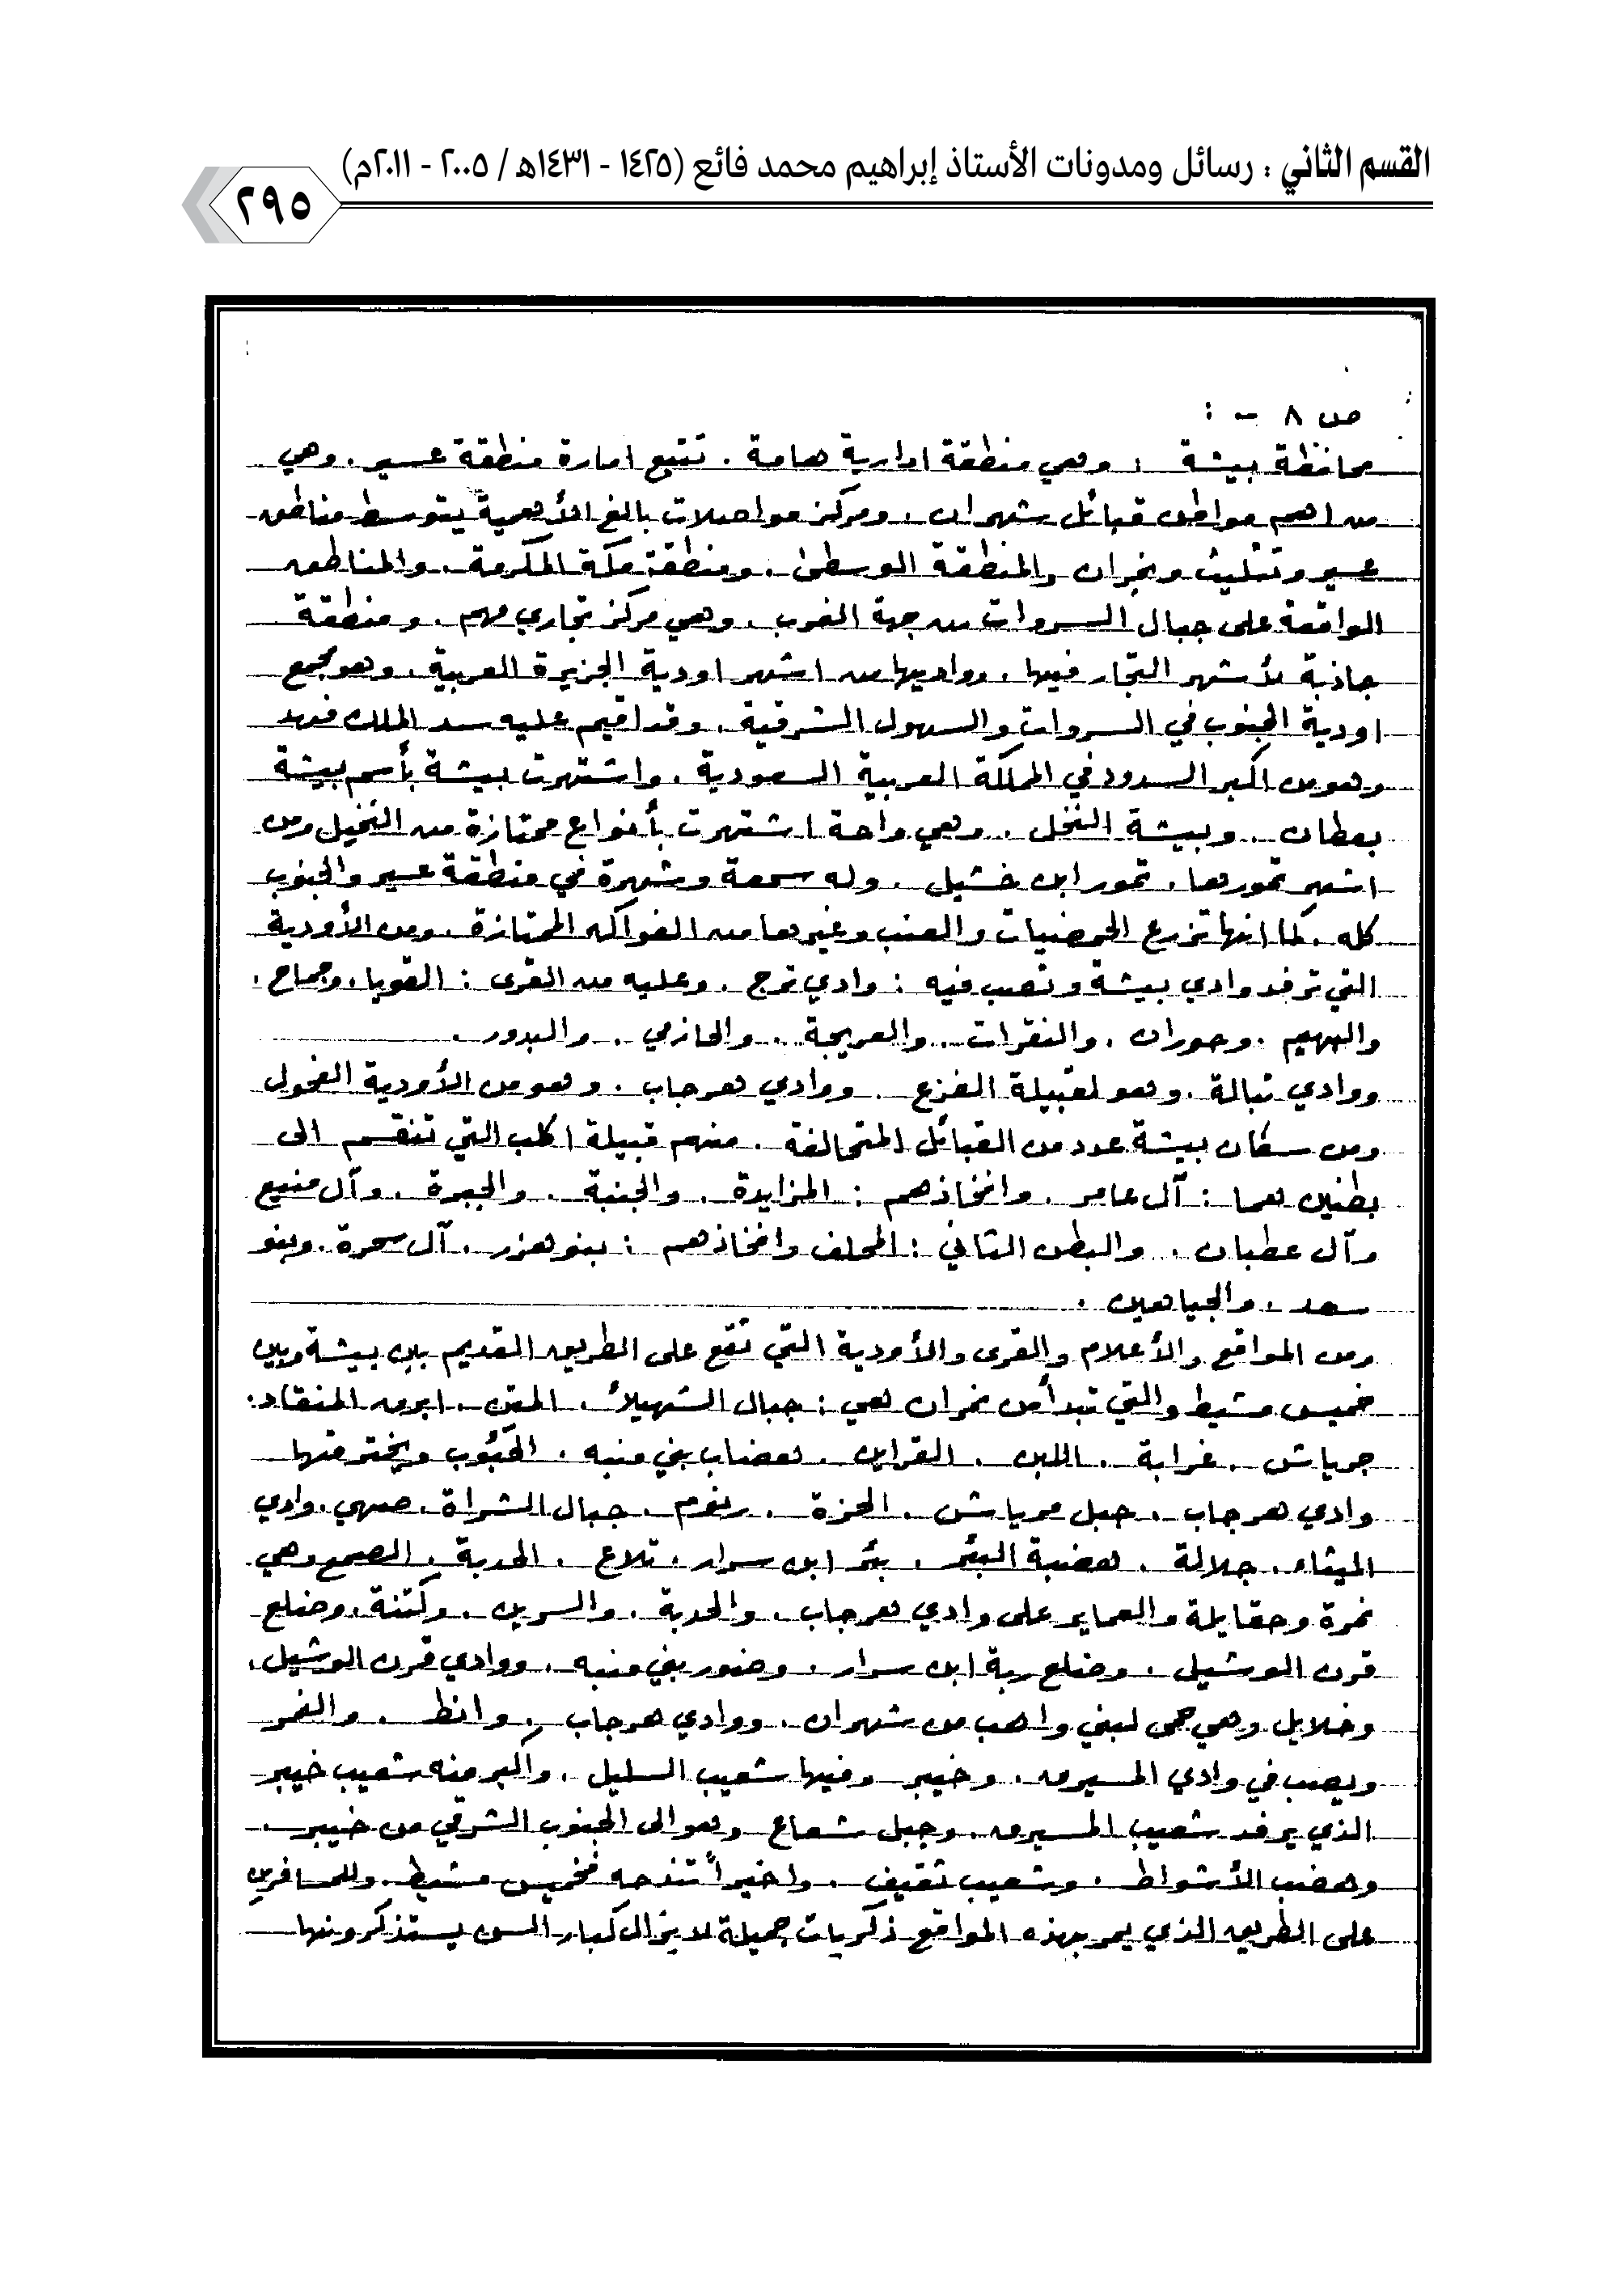 القسم الثاني : رسائل ومدونات الأستاذ إبراهيم محمد فائع (١٤٢٥ - ١٤٣١هـ / ٢٠٠٥ - ٢٠١١م)
٢٩٥
ص ٨ - :
محافظة بيشة . وهي منطقة ادارية هامة . تتبع امارة منطقة عسير . وهي
من اهم مواطن قبائل شهران . ومركز مواصلات بالغ الأهمية يتوسط مناطق
عسير وتثليث ونجران والمنطقة الوسطى . ومنطقة مكة المكرمة . والمناطق
الواقعة على جبال السروات من جهة الغرب . وهي مركز تجاري مهم . ومنطقة
جاذبة لأشهر التجار فيها . وواديها من اشهر اودية الجزيرة العربية . وهو مجمع
اودية الجنوب في السروات والسهول الشرقية . وقد اقيم عليه سد الملك فهد
وهو من اكبر السدود في المملكة العربية السعودية . واشتهرت بيشة بأسم بيشة
بعطان . وبيشة النخل . وهي واحة اشتهرت بأنواع ممتازة من النخيل ومن
اشهر تمورها . تمور ابن خشيل . وله سمعة وشهرة في منطقة عسير والجنوب
كله . كما انها تزرع الحمضيات والعنب وغيرها من الفواكه الممتازة . ومن الأودية
التي ترفد وادي بيشة وتصب فيه : وادي ترج . وعليه من القرى : القوبا . وجماح .
والبهيم . وحوران . والنقرات . والعريجة . والحازمي . والبدور .
ووادي تبالة . وهو لقبيلة الفزع . ووادي هرجاب . وهو من الأودية الفحول
ومن سكان بيشة عدد من القبائل المتحالفة . منهم قبيلة اكلب التي تنقسم الى
بطنين هما : آل عامر . وافخاذهم : المزايدة . والجنبة . والجبرة . وآل منيع
وآل عطبان . والبطن الثاني : المحلف وافخاذهم : بنو هزر . آل سمرة . وبنو
سعد . والجياهين .
ومن المواقع والأعلام والقرى والأودية التي تقع على الطريق القديم بين بيشة وبين
خميس مشيط والتي تبدأ من نمران هي : جبال الشهيلأ . المتن . ابرق المنقاد .
جرياش . غرابة . اللبن . القراين . هضاب بني منبه . الحبوب ويخترقها
وادي هرجاب . جبل مرياش . الحزة . رنوم . جبال الشراة . صهي . وادي
الميثاء . جلالة . هضبة البئر . بئر ابن سرار . تلاع . الحدبة . الصمع وهي
نمرة وحقايلة والعماير على وادي هرجاب . والحدبة . والسرين . وكتنة . وضلع
قرن الوشيل . وضلع ربة ابن سرار . وضور بني منبه . ووادي قرن الوشيل .
وخلايل وهي حمى لبني واهب من شهران . ووادي هرجاب . وانط . والغمر
ويصب في وادي المسيرق . وخيبر وفيها شعيب السليل . واكبر منه شعيب خيبر
الذي يرفد شعيب المسيرق . وجبل شعاع وهو الى الجنوب الشرقي من خيبر .
وهضب الأشواط . وشعيب ثقيف . واخيراً تندحه فخميس مشيط . وللمسافرين
على الطريق الذي يمر بهذه المواقع ذكريات جميلة لا يزال كبار السن يستذكرونها